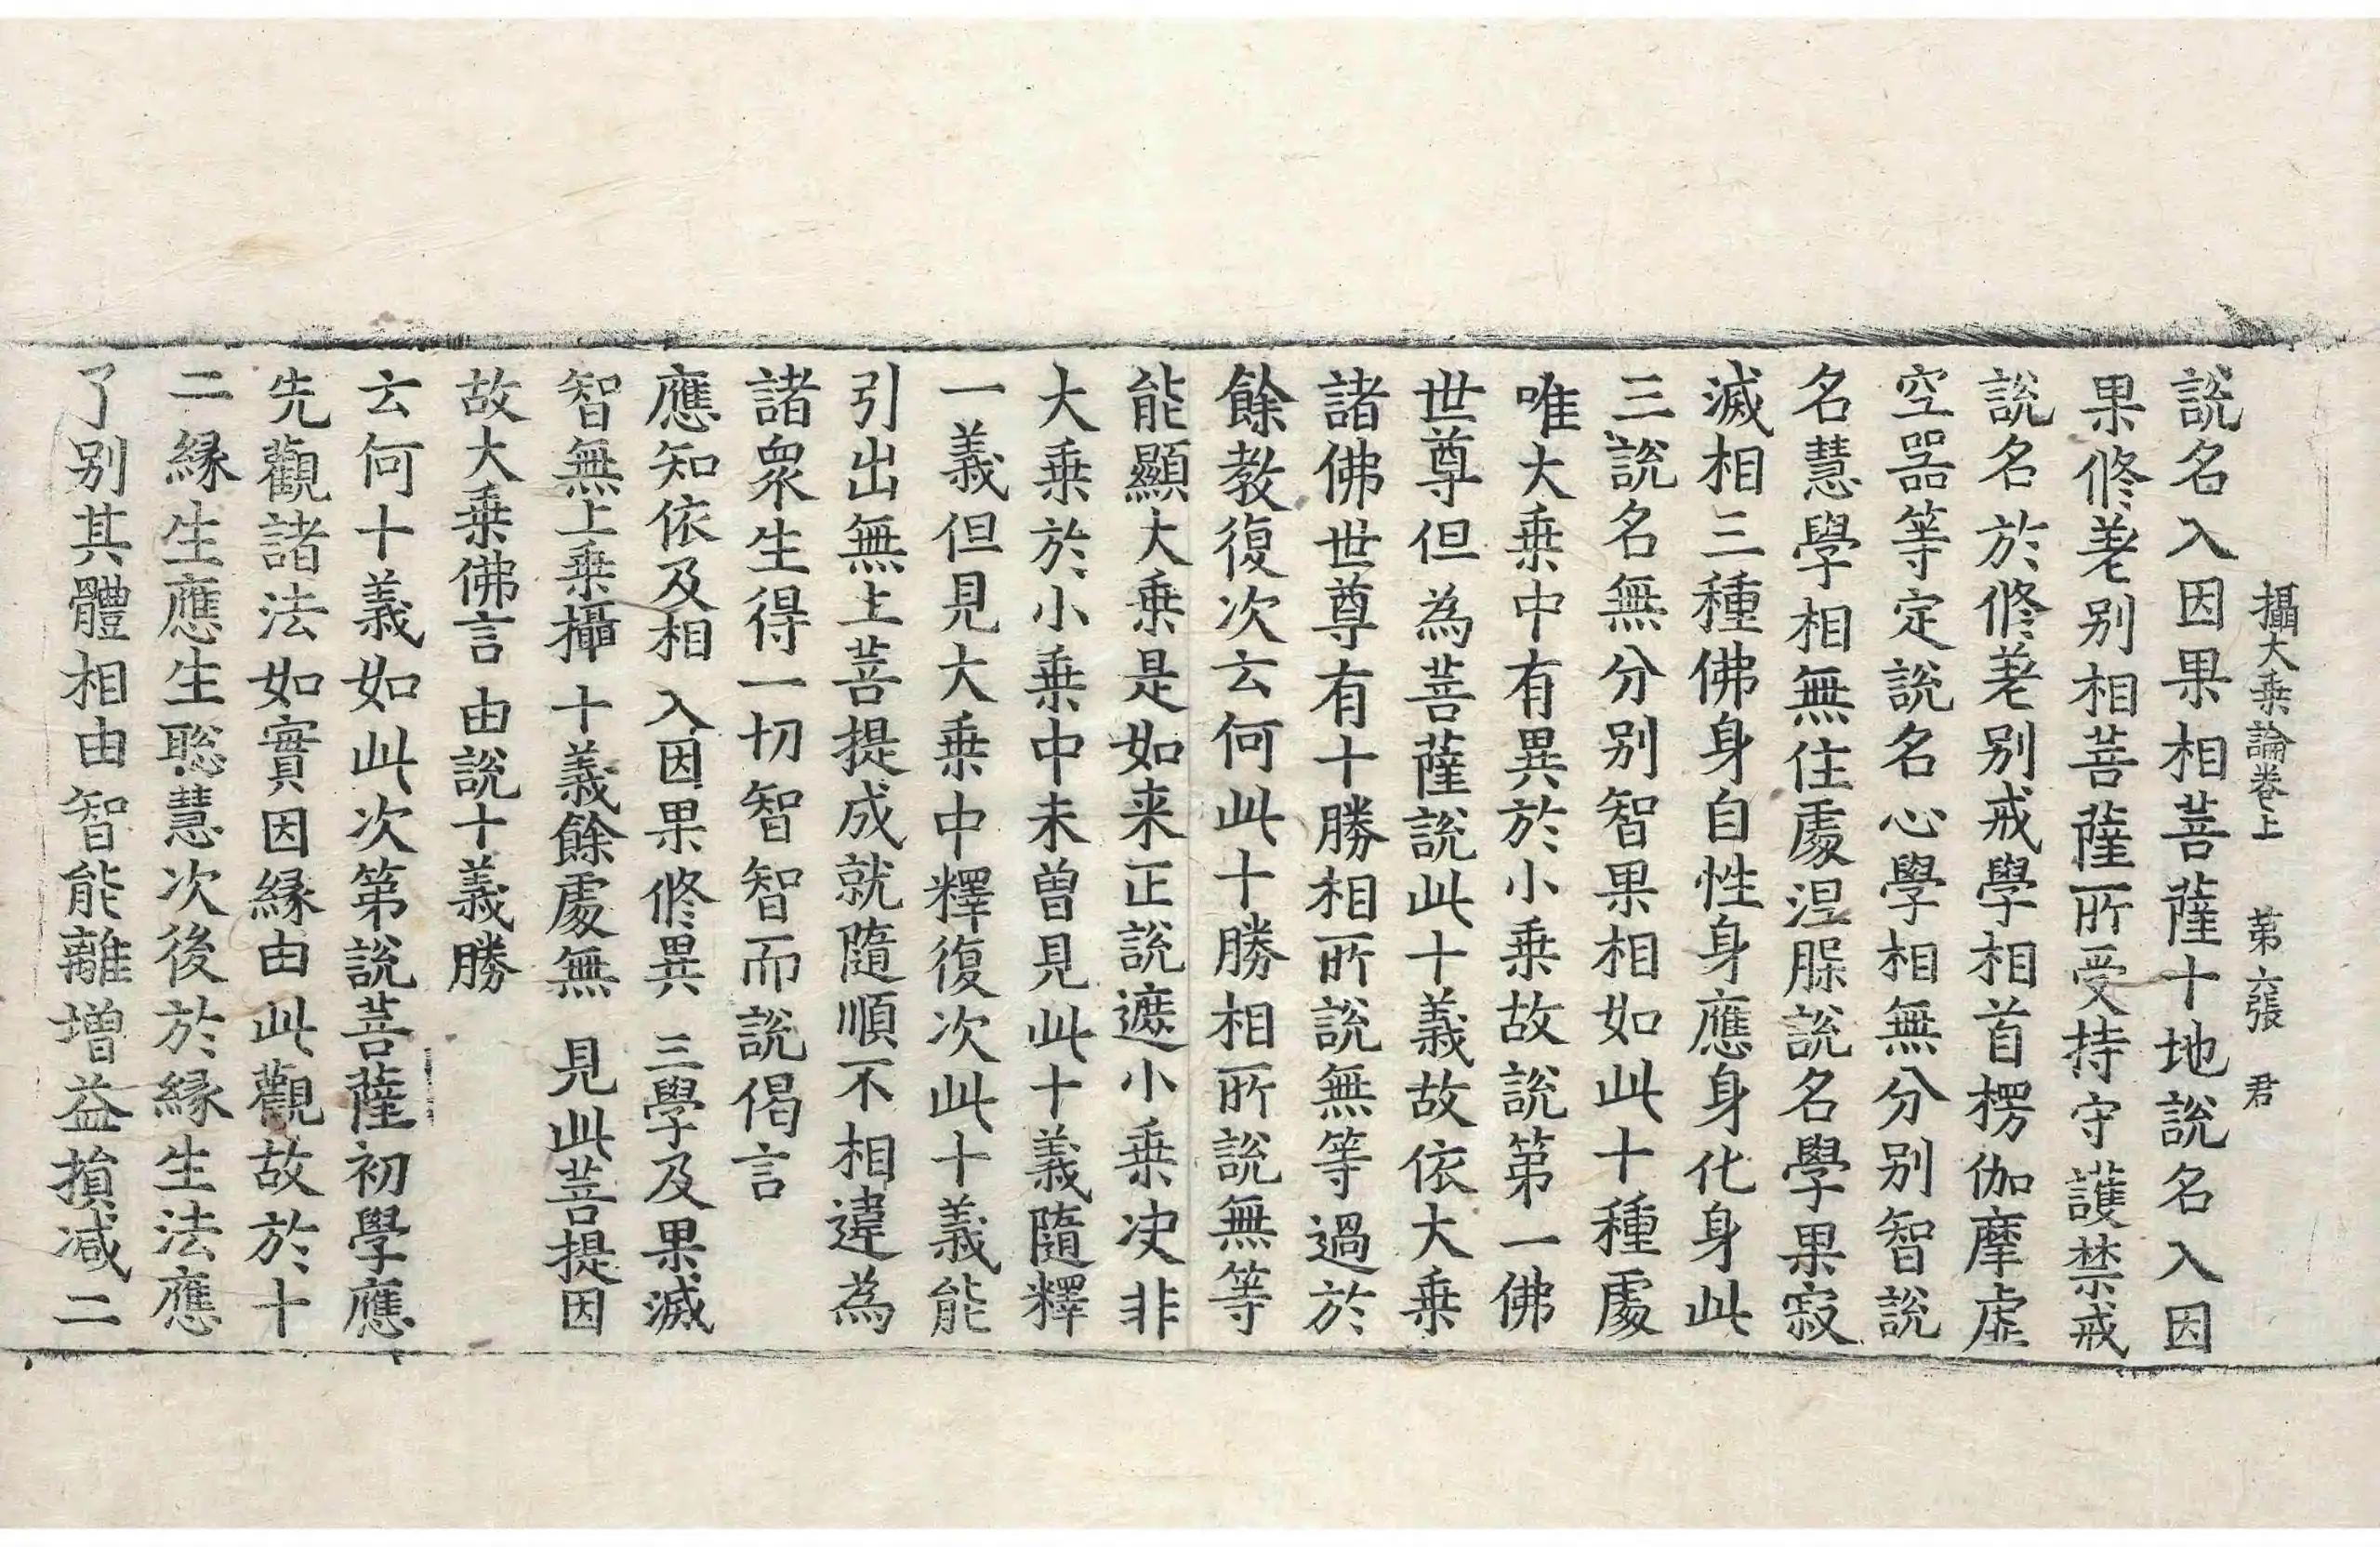 攝大乗論卷上　第六張　君
說名入因果相菩薩十地說名入因
果修差别相菩薩所受持守護禁戒
說名於修差别戒學相首楞伽摩虚
空器等定說名心學相無分别智說
名慧學相無住處涅槃說名學果寂
滅相三種佛身自性身應身化身此
三說名無分别智果相如此十種處
唯大乗中有異於小乗故說第一佛
世尊但為菩薩說此十義故依大乗
諸佛世尊有十勝相所說無等過於
餘教復次云何此十勝相所說無等
能顯大乗是如来正說遮小乗决非
大乗於小乗中未曾見此十義隨釋
一義但見大乗中釋復次此十義能
引出無上菩提成就隨順不相違為
諸衆生得一切智智而說偈言
應知依及相　入因果修異　三學及果滅
智無上乗攝　十義餘處無　見此菩提因
故大乗佛言　由說十義勝
云何十義如此次第說菩薩初學應
先觀諸法如實因縁由此觀故於十
二縁生應生聡慧次後於縁生法應
了别其體相由智能離增益損减二